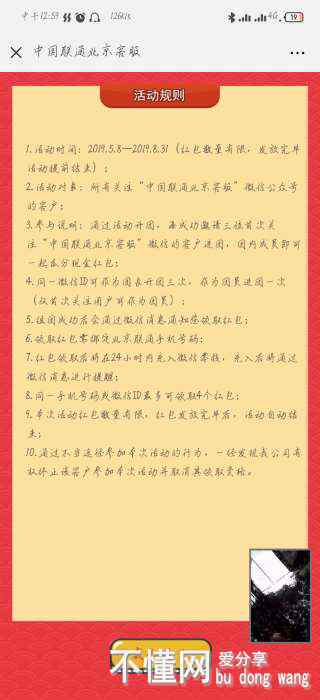 中午12:59 126K/s 4G 19
中国联通北京客服
活动规则
1.活动时间：2019.5.8—2019.8.31（红包数量有限，发放完毕
活动提前结束）；
2.活动对象：所有关注“中国联通北京客服”微信公众号
的客户；
3.参与说明：通过活动开团，并成功邀请三位首次关
注“中国联通北京客服”微信的客户进团，团内成员即可
一起瓜分现金红包；
4.同一微信ID可作为团长开团三次，作为团员进团一次
（仅首次关注用户可作为团员）；
5.组团成功后会通过微信消息通知您领取红包；
6.领取红包需绑定北京联通手机号码；
7.红包领取后将在24小时内充入微信零钱，充入后将通过
微信消息进行提醒；
8.同一手机号码或微信ID最多可领取4个红包；
9.本次活动红包数量有限，红包发放完毕后，活动自动结
束；
10.通过不当途径参加本次活动的行为，一经发现我公司有
权终止该客户参加本次活动并取消其领取资格。
不懂网 爱分享
bu dong wang